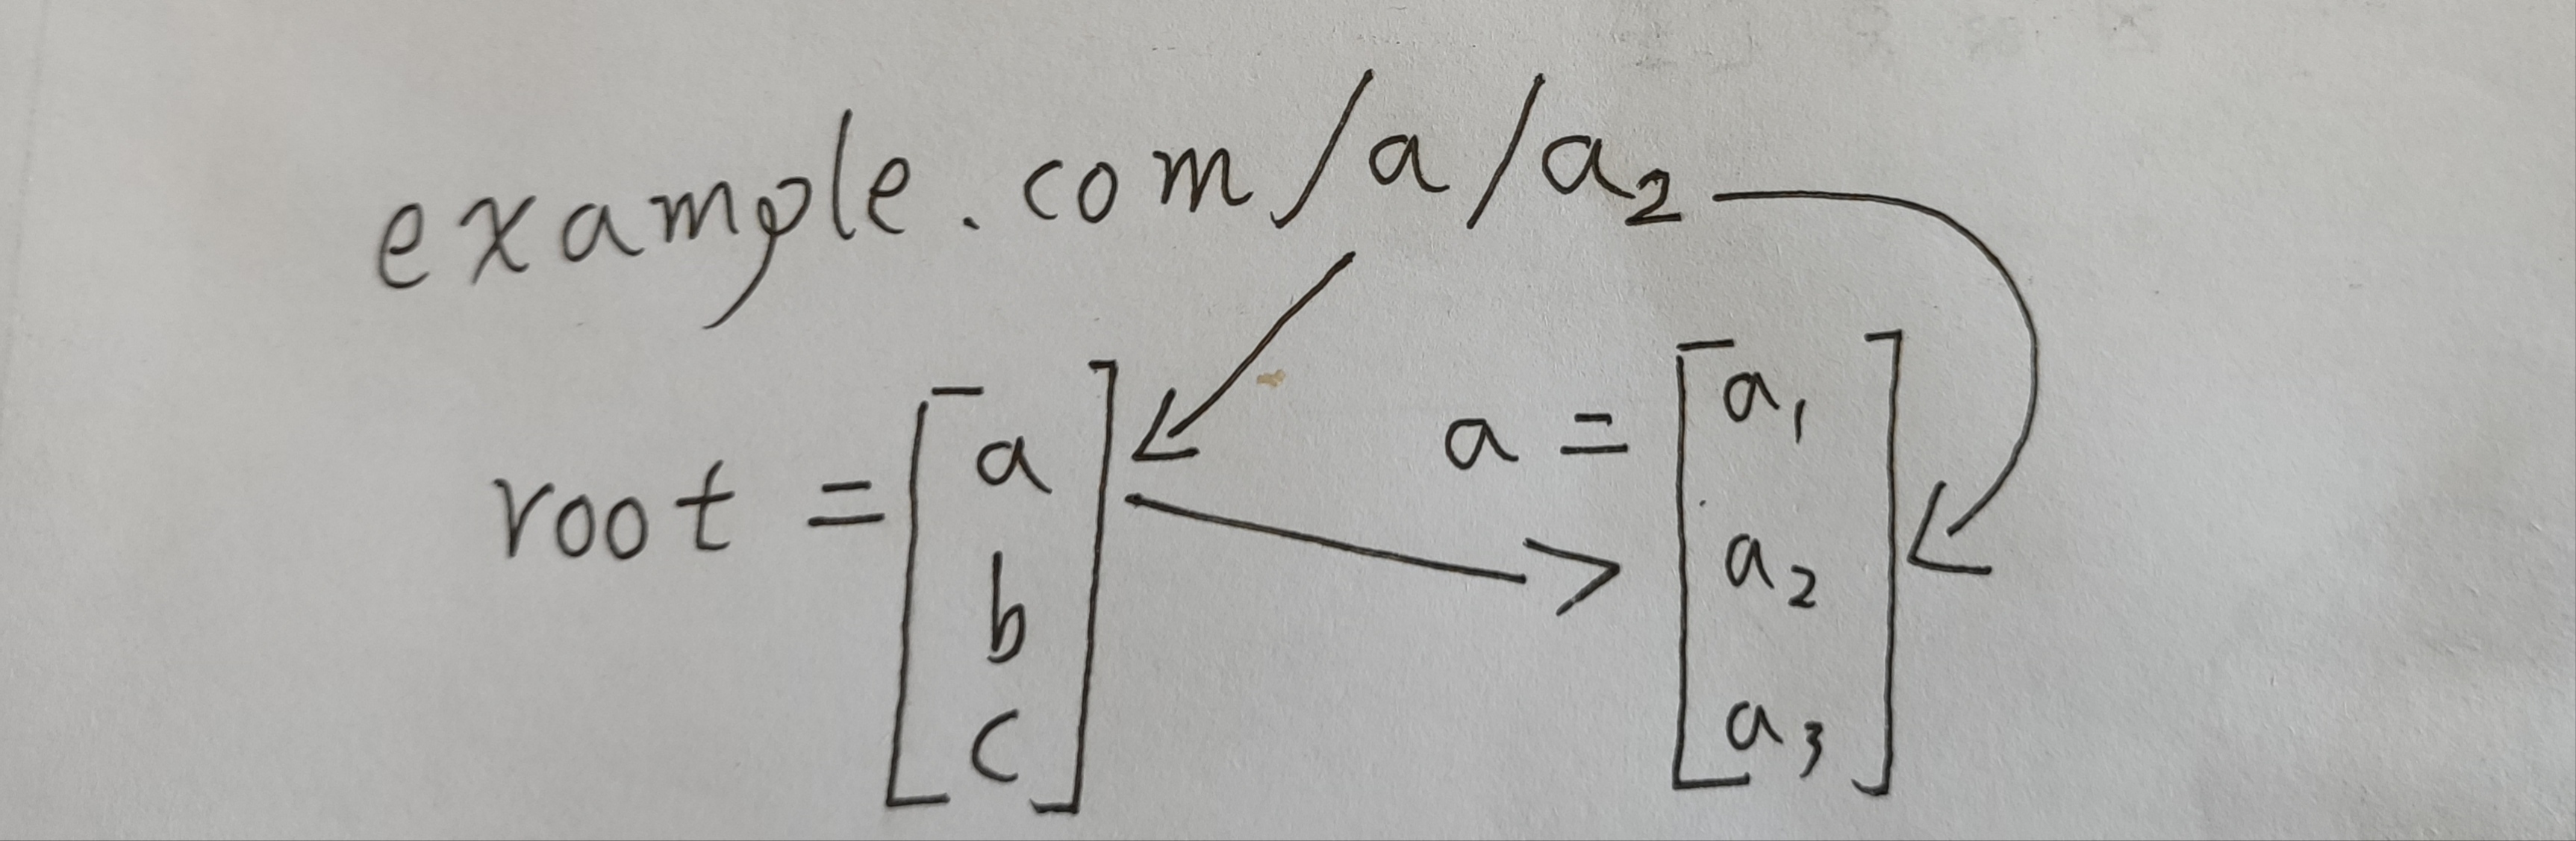 example.com/a/a₂
root = [a b c]
a = [a₁ a₂ a₃]